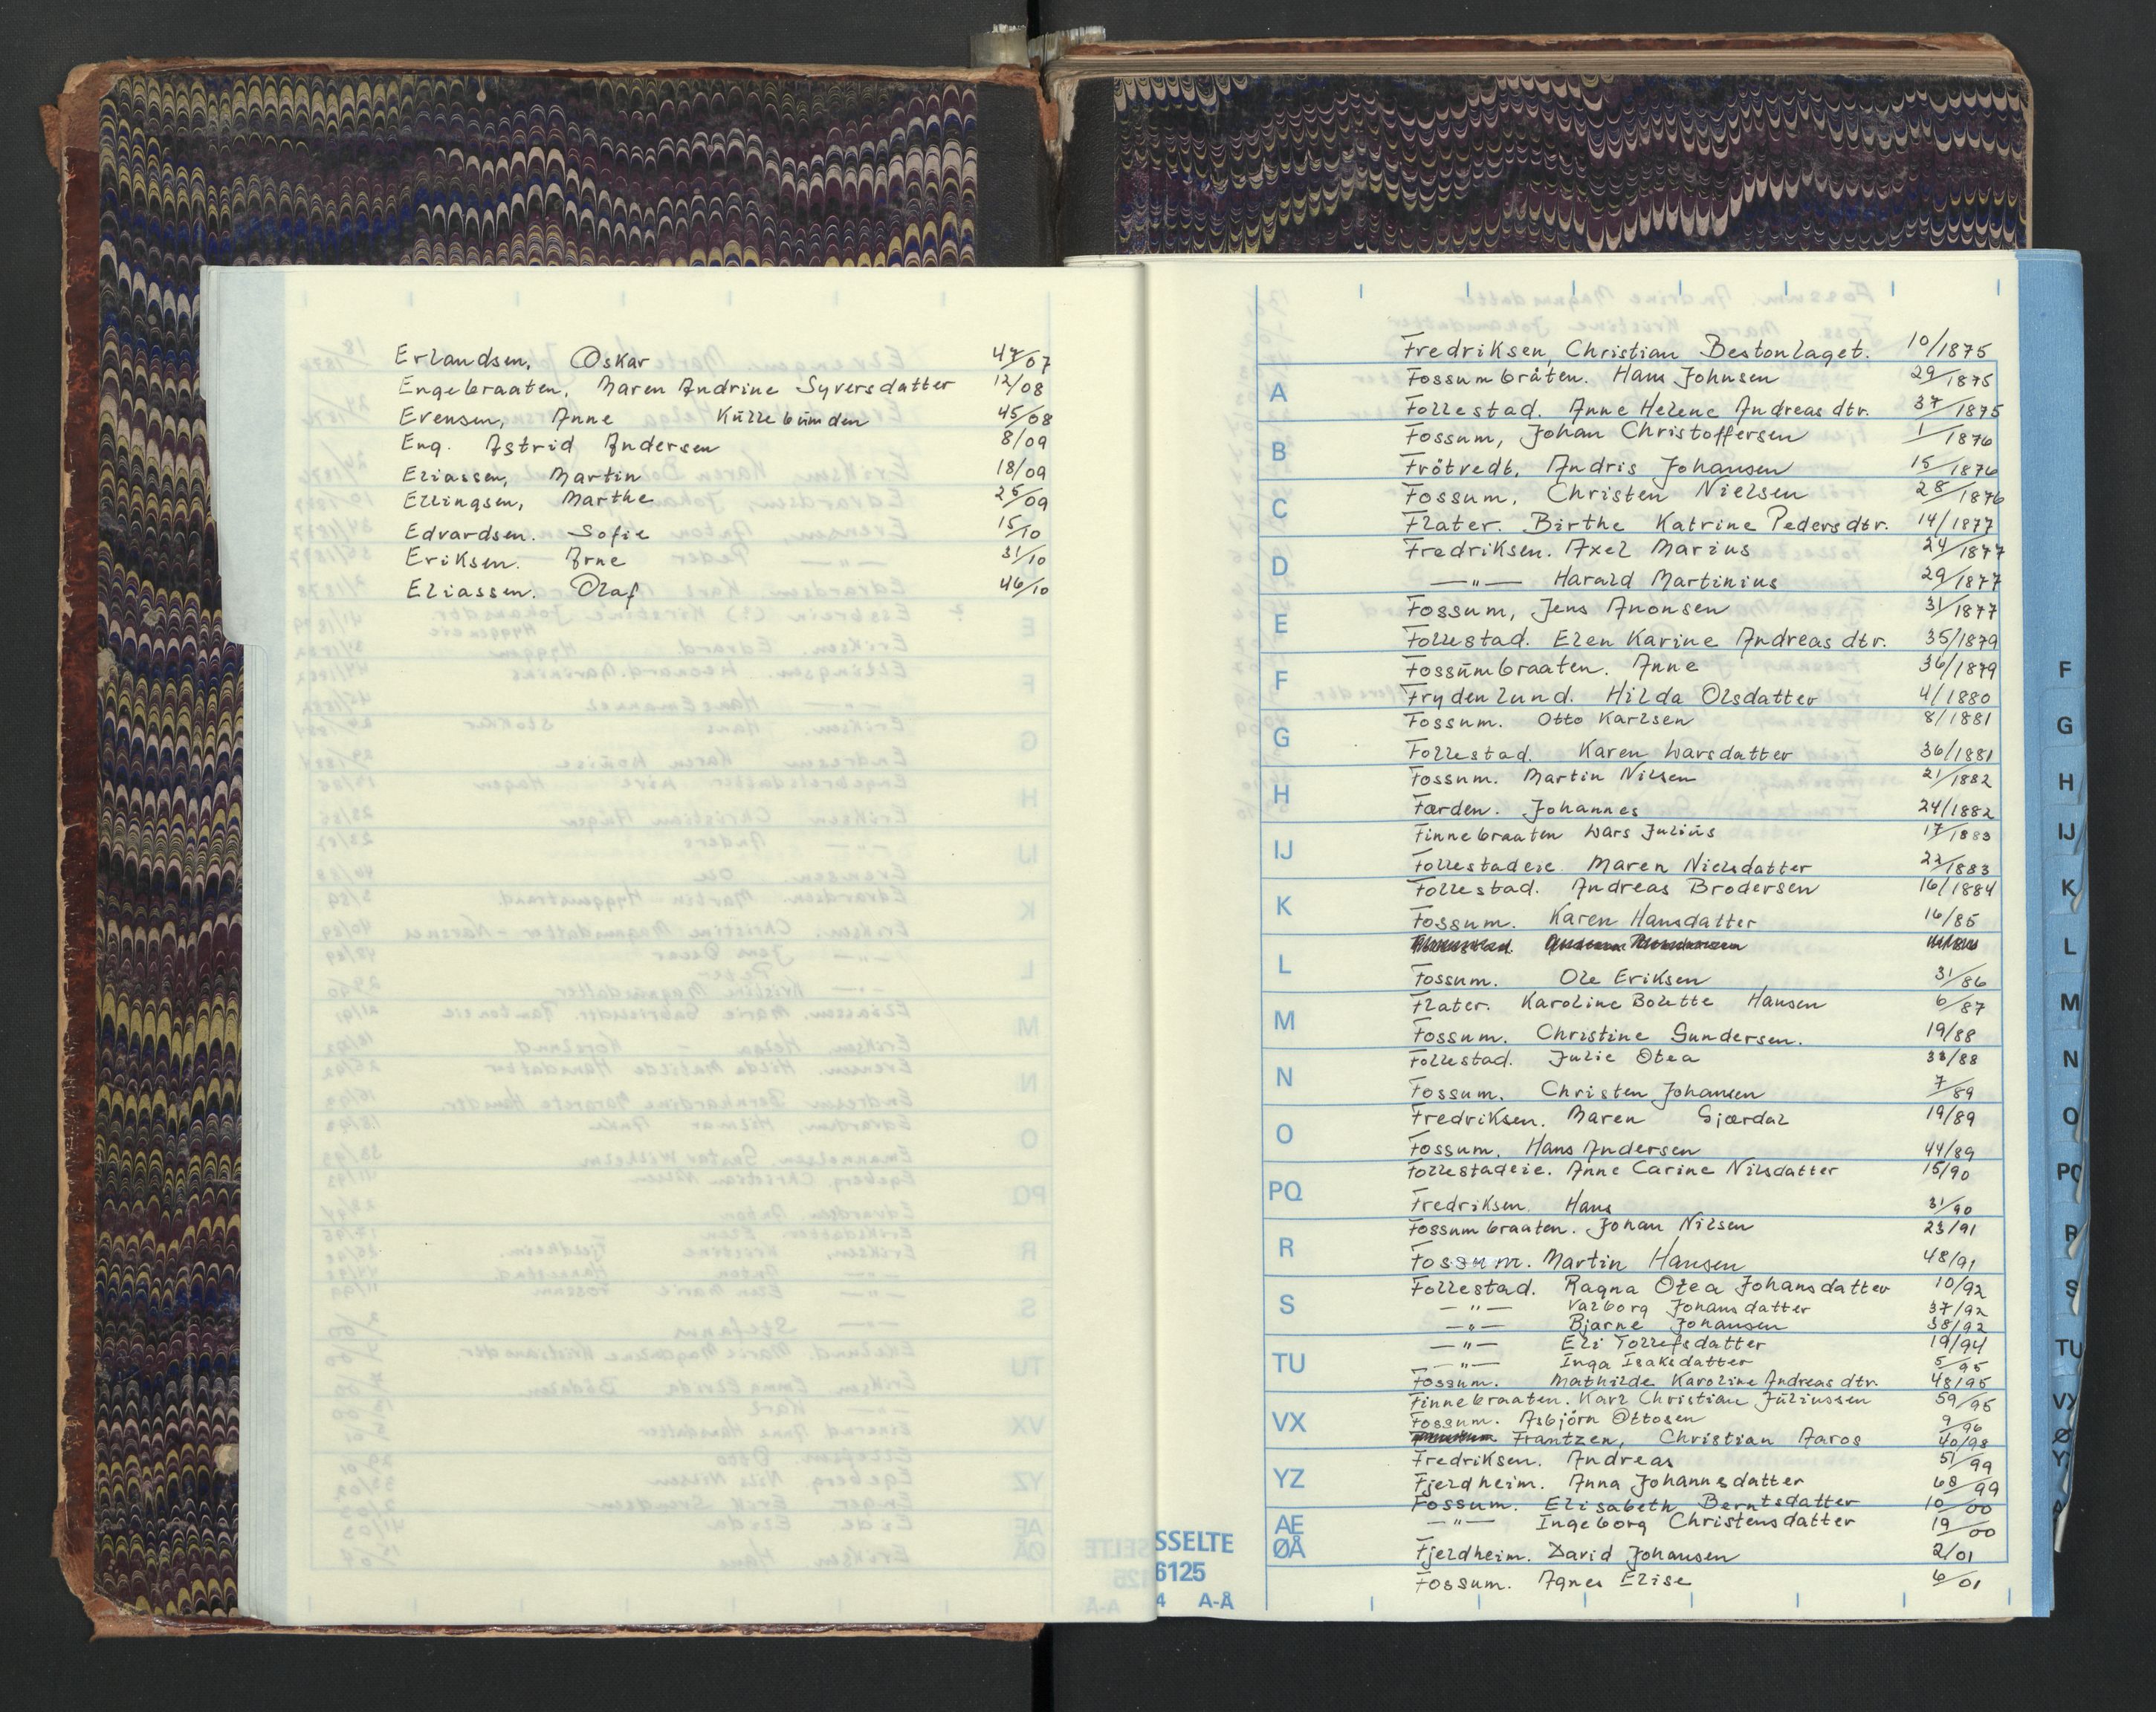 Erlandsen, Oskar 47/07
Engebraaten, Maren Andrine Syversdatter 12/08
Evensen, Anne Küllebunden 45/08
Eng. Astrid Andersen 8/09
Eliassen, Martin 18/09
Ellingsen, Marthe 25/09
Edvardsen. Sofie 15/10
Eriksen. Arne 31/10
Eliassen. Olaf 46/10
Fredriksen, Christian Bestonlaget. 10/1875
Fossumbråten. Hans Johnsen 29/1875
Follestad. Anne Helene Andreasdtr. 37/1875
Fossum, Johan Christoffersen 1/1876
Frötvedt, Andris Johansen 15/1876
Fossum, Christen Nielsen 28/1876
Flater. Birthe Katrine Pedersdtr. 14/1877
Fredriksen. Axel Marius 24/1877
—"— Harald Martinius 29/1877
Fossum, Jens Anonsen 31/1877
Follestad. Elen Karine Andreasdtr. 35/1879
Fossümbraaten. Anne 36/1879
Frydenlund. Hilda Olsdatter 4/1880
Fossum. Otto Karlsen 8/1881
Follestad. Karen Larsdatter 36/1881
Fossum. Martin Nilsen 21/1882
Færden. Johannes 24/1882
Finnebraaten Lars Juliüs 17/1883
Follestadeie. Maren Nielsdatter 22/1883
Follestad. Andreas Brodersen 16/1884
Fossum. Karen Hansdatter 16/85
Fossum. Ole Eriksen 31/86
Flater. Karoline Bolette Hansen 6/87
Fossum. Christine Gundersen. 19/88
Follestad. Julie Otea 33/88
Fossum. Christen Johansen 7/89
Fredriksen. Maren Gjærdal 19/89
Fossum. Hans Andersen 44/89
Follestadeie. Anne Carine Nilsdatter 15/90
Fredriksen. Hans 31/90
Fossumbraaten. Johan Nilsen 23/91
Fossum. Martin Hansen 48/91
Follestad. Ragna Otea Johansdatter 10/92
—"— Valborg Johansdatter 37/92
—"— Bjarne Johansen 38/92
—"— Eli Tollefsdatter 19/94
—"— Inga Isaksdatter 5/95
Fossum. Mathilde Karoline Andreasdtr. 48/95
Finnebraaten. Karl Christian Jüliussen 59/95
Fossum. Asbjörn Ottosen 9/96
Frantzen, Christian Aaros 40/98
Fredriksen. Andreas 51/99
Fjeldheim. Anna Johannesdatter 68/99
Fossum. Elisabeth Berntsdatter 10/00
—"— Ingeborg Christensdatter 19/00
Fjeldheim. David Johansen 2/01
Fossum. Agnes Elise 6/01
A
B
C
D
E
F
G
H
IJ
K
L
M
N
O
PQ
R
S
TU
VX
YZ
AE
ØÅ
SSELTE
6125
4 A-Å
F
G
H
IJ
K
L
M
N
O
PQ
R
S
TU
VX